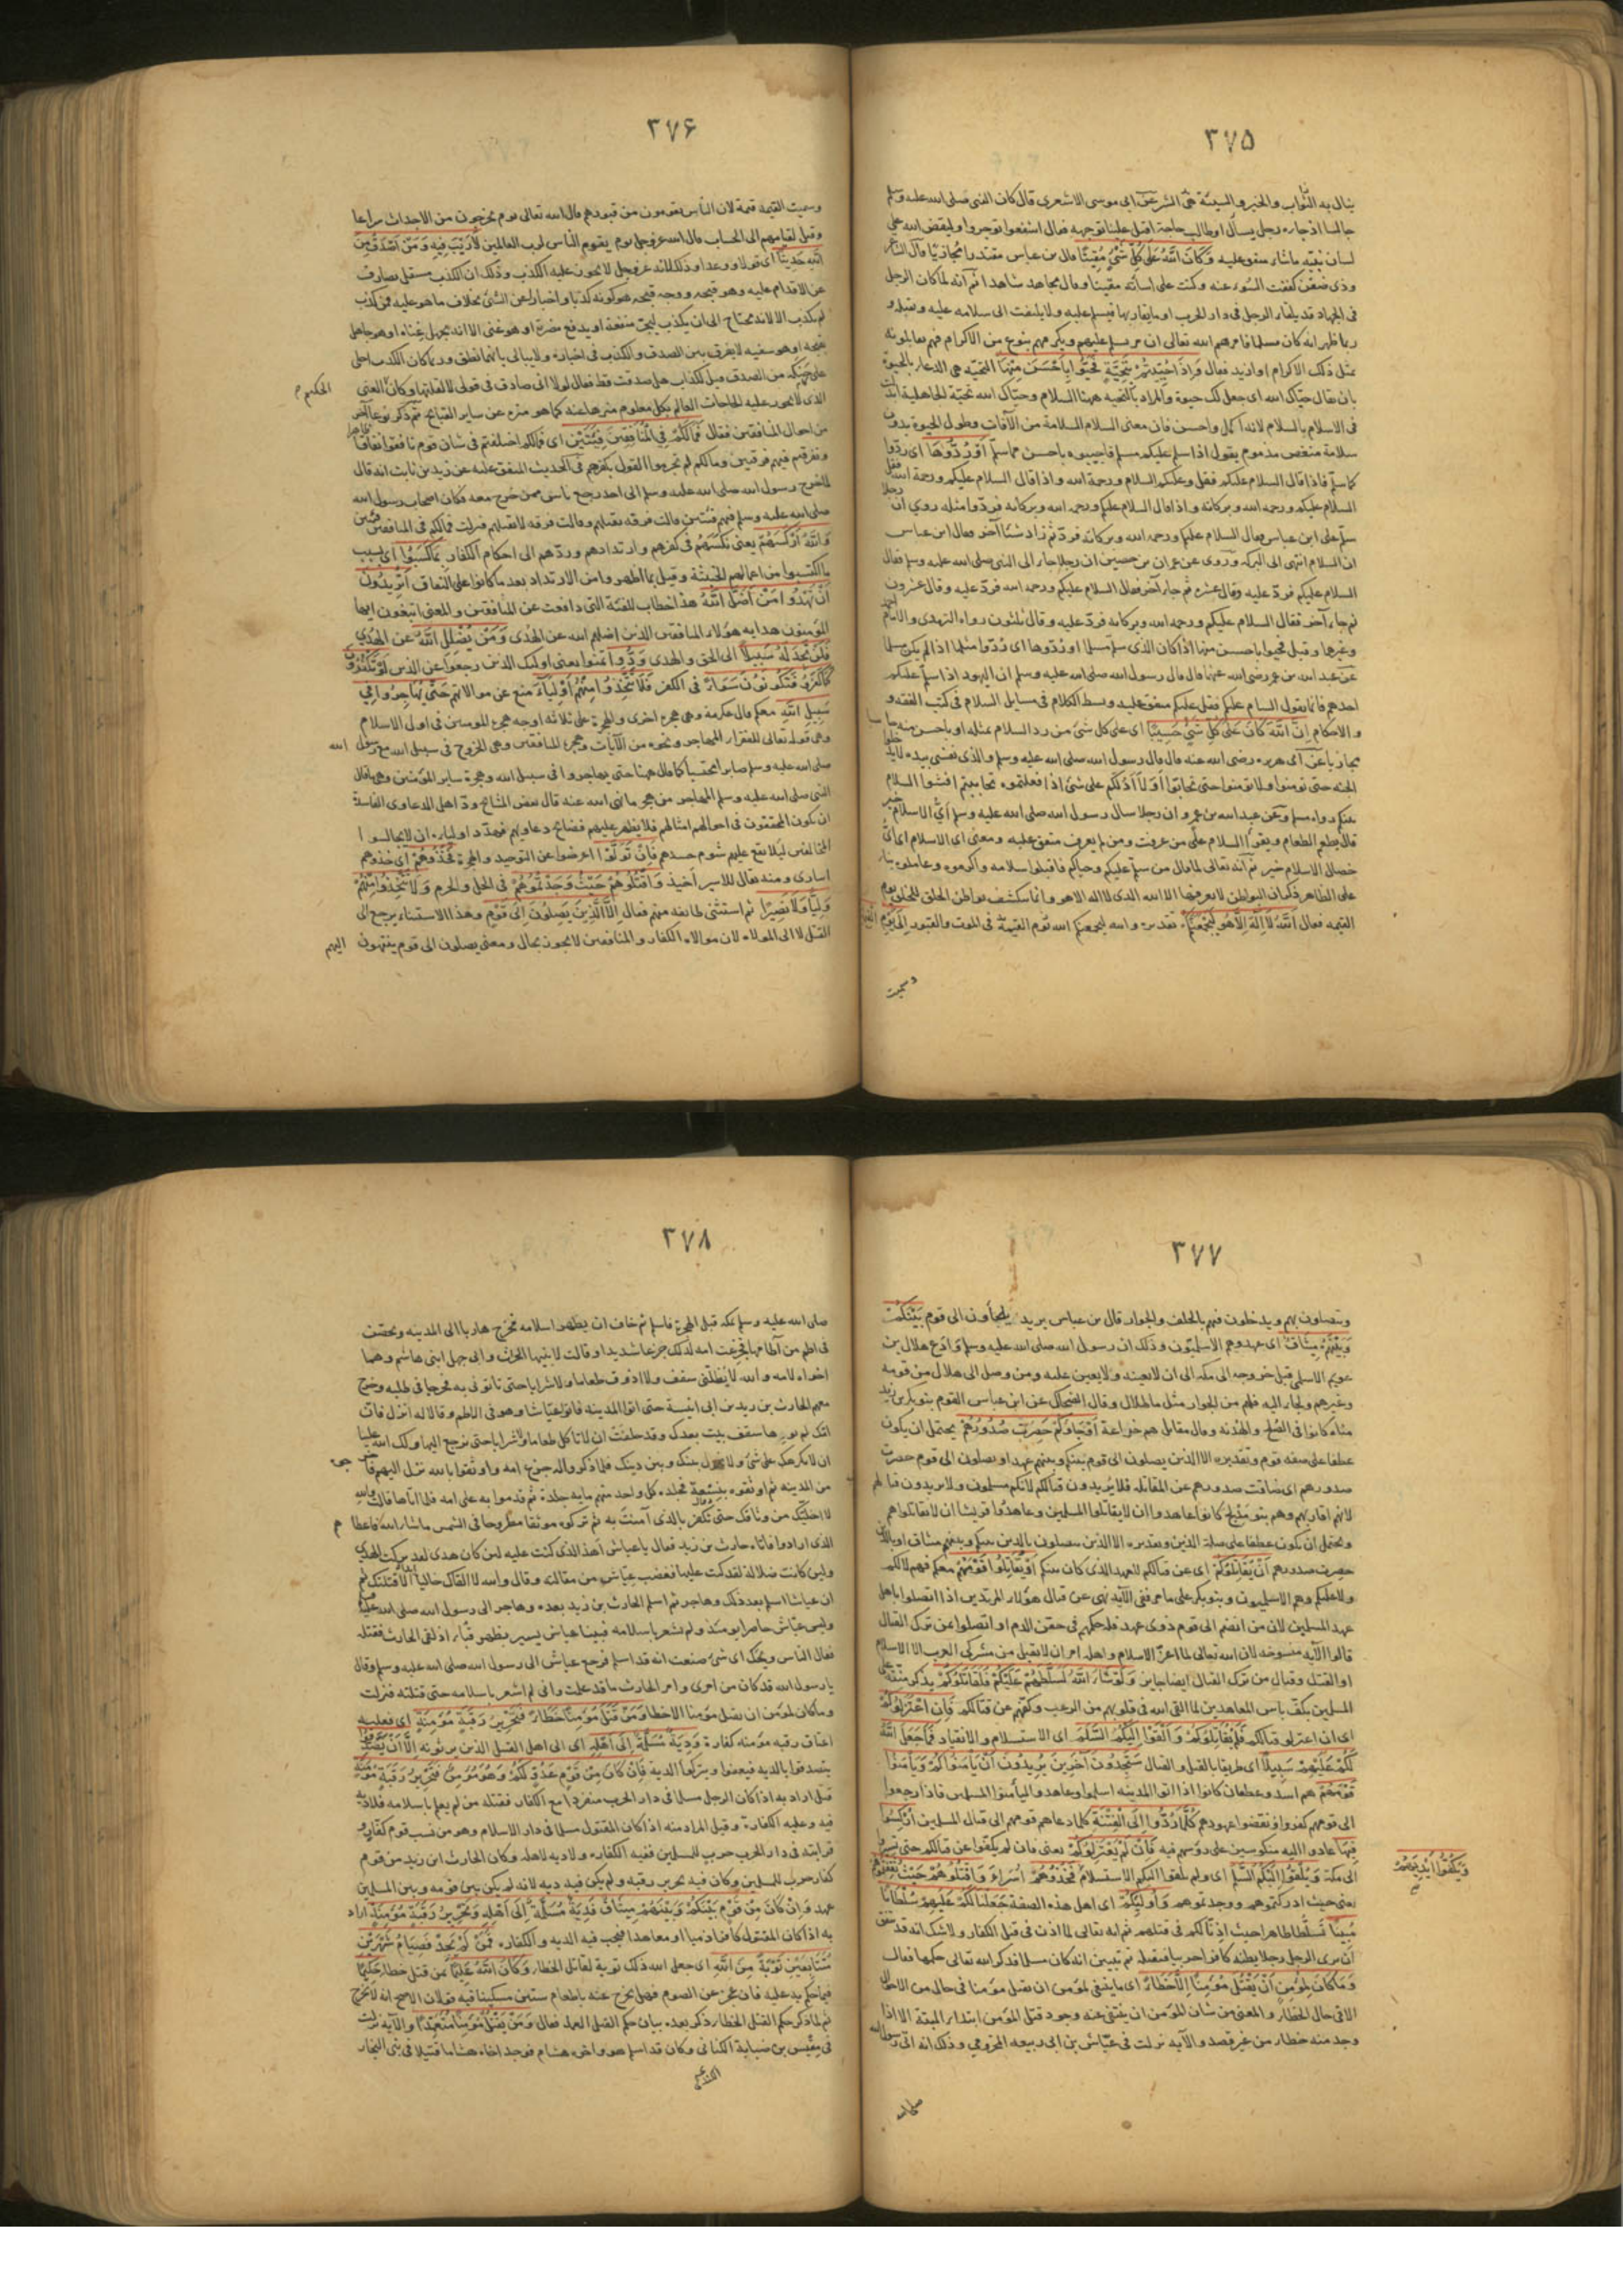 ٣٧٥
ينال به الثواب والخير والسيئة هى الشر عن ابى موسى الاشعرى قال كان النبى صلى الله عليه وسلم
جالسا اذ جاءه رجل يسأل او طالب حاجة اقبل علينا بوجهه فقال اشفعوا توجروا وليقض الله على
لسان نبيه ما شاء متفق عليه وَكَانَ اللّٰهُ عَلَى كُلِّ شَىْءٍ مُقِيتًا قال بن عباس مقتدرا مجازيا قال الشاعر
وذى ضغن كففت السوء عنه وكنت على اساءته مقيتا وقال مجاهد شاهدا ثم انه لما كان الرجل
فى الجهاد قد يلقاه الرجل فى دار الحرب او ما يقاربها فيسلم عليه ولا يلتفت الى سلامه عليه ويقتله و
ربما ظهر انه كان مسلما فامرهم الله تعالى ان من يسلم عليهم ويكرمهم بنوع من الاكرام فهم يقابلونه
بمثل ذلك الاكرام او ازيد فقال وَاِذَا حُيِّيتُمْ بِتَحِيَّةٍ فَحَيُّوا بِاَحْسَنَ مِنْهَا التحية هى الدعاء بالحيوة
بان يقال حيّاك الله اى جعل لك حيوة والمراد بالتحية ههنا السلام وحيّاك الله تحية الجاهلية
فى الاسلام بالسلام لانه اكمل واحسن فان معنى السلام السلامة من الآفات وطول الحيوة بدون
سلامة منغص مذموم يقول اذا سلم عليكم مسلم فاجيبوه باحسن مما سلم اَوْ رُدُّوهَا اى ردّوا
كما سلم فاذا قال السلام عليكم فقل وعليكم السلام ورحمة الله واذا قال السلام عليكم ورحمة الله فقل
السلام عليكم ورحمة الله وبركاته واذا قال السلام عليكم ورحمة الله وبركاته فردّوا مثله روى ان رجلا
سلم على ابن عباس فقال السلام عليكم ورحمة الله وبركاته فردّ ثم زاد شيئا آخر فقال ابن عباس
ان السلام انتهى الى البركة وروى عن عمران بن حصين ان رجلا جاء الى النبى صلى الله عليه وسلم فقال
السلام عليكم فردّ عليه وقال عشر ثم جاء آخر فقال السلام عليكم ورحمة الله فردّ عليه وقال عشرون
ثم جاء آخر فقال السلام عليكم ورحمة الله وبركاته فردّ عليه وقال ثلثون رواه الترمذى والامام احمد
وغيرهما وقيل فحيوا باحسن منها اذا كان الذى سلم مسلما او رُدّوها اى رُدّوا مثلها اذا لم يكن مسلما
عن عبد الله بن عمر رضى الله عنهما قال قال رسول الله صلى الله عليه وسلم ان اليهود اذا سلم عليكم
احدهم فانما يقول السام عليكم فقل عليكم متفق عليه وبسط الكلام فى مسايل السلام فى كتب الفقه و
الاحكام اِنَّ اللّٰهَ كَانَ عَلَى كُلِّ شَىْءٍ حَسِيبًا اى على كل شىء من رد السلام بمثله او باحسن منه
مجازيا عن ابى هريرة رضى الله عنه قال قال رسول الله صلى الله عليه وسلم والذى نفسى بيده لا تدخلوا
الجنة حتى تومنوا ولا تومنوا حتى تحابّوا اَوَلَا اَدُلّكم على شىء اذا فعلتموه تحاببتم افشوا السلام
بينكم رواه مسلم وعن عبد الله بن عمرو ان رجلا سال رسول الله صلى الله عليه وسلم اىّ الاسلام خير
قال تطعم الطعام وتقرأ السلام على من عرفت ومن لم تعرف متفق عليه ومعنى اى الاسلام اى اىّ
خصال الاسلام خير ثم انه تعالى لما قال من سلم عليكم وحياكم فاقبلوا سلامه واكرموه وعاملوه بناء
على الظاهر ذكر ان البواطن لا يعرفها الا الله الذى لا اله الا هو وانما سكشف بواطن الخلق للخلق يوم
القيمة فقال اَللّٰهُ لَا اِلٰهَ اِلَّا هُوَ لَيَجْمَعَنَّكُمْ تقديره والله ليجمعنكم الله يوم القيمة فى الموت والقبور اِلٰى يَوْمِ القيمة
وسميت
٣٧۶
وسميت القيمة قيمة لان الناس يقومون من قبورهم قال الله تعالى يوم يخرجون من الاجداث سراعا
وقيل لقيامهم الى الحساب قال الله عز وجل يوم يقوم الناس لرب العالمين لَا رَيْبَ فِيهِ وَمَنْ اَصْدَقُ مِنَ
اللّٰهِ حَدِيثًا اى قولا ووعدا وذلك لانه عز وجل لا يجوز عليه الكذب وذلك ان الكذب مستقل بصارف
عن الاقدام عليه وهو قبحه ووجه قبحه هو كونه كذبا واخبارا عن الشىء بخلاف ما هو عليه فمن كذب
لم يكذب الا لانه محتاج الى ان يكذب ليجرّ منفعة او يدفع مضرة او هو غنى الا انه يجهل غناه او هو جاهل
بقبحه او هو سفيه لا يفرق بين الصدق والكذب فى اخباره ولا يبالى بايهما نطق وربما كان الكذب احلى
على حنكه من الصدق قيل لكذاب هل صدقت قط فقال لولا انى صادق فى قولى لا لقلتها وكان الغنى
الحكيم
الذى لا يجوز عليه الحاجات العالم بكل معلوم منزها عنه كما هو منزه عن ساير القبايح ثم ذكر نوعا آخر
من احوال المنافقين فقال فَمَا لَكُمْ فِى الْمُنَافِقِينَ فِئَتَيْنِ اى فما لكم اختلفتم فى شان قوم نافقوا نفاقا ظاهرا
وتفرقتم فيهم فرقتين وما لكم لم تجزموا القول بكفرهم فى الحديث المتفق عليه عن زيد بن ثابت انه قال
لما خرج رسول الله صلى الله عليه وسلم الى احد رجع ناس ممن خرج معه فكان اصحاب رسول الله
صلى الله عليه وسلم فيهم فئتين قالت فرقة نقتلهم وقالت فرقة لا نقتلهم فنزلت فما لكم فى المنافقين فئتين
وَاللّٰهُ اَرْكَسَهُمْ يعنى نكّسهم فى كفرهم وارتدادهم وردّهم الى احكام الكفار بِمَا كَسَبُوا اى بسبب
ما اكتسبوا من اعمالهم الخبيثة وقيل بما اظهروا من الارتداد بعد ما كانوا على النفاق اَتُرِيدُونَ
اَنْ تَهْدُوا مَنْ اَضَلَّ اللّٰهُ هذا خطاب للفئة التى دافعت عن المنافقين والمعنى اتبغون ايها
المؤمنون هداية هؤلاء المنافقين الذين اضلهم الله عن الهُدى وَمَنْ يُضْلِلِ اللّٰهُ عن الهدى
فَلَنْ تَجِدَ لَهُ سَبِيلًا الى الحق والهدى وَدُّوا تمنوا يعنى اولئك الذين رجعوا عن الدين لَوْ تَكْفُرُونَ
كَمَا كَفَرُوا فَتَكُونُونَ سَوَاءً فى الكفر فَلَا تَتَّخِذُوا مِنْهُمْ اَوْلِيَاءَ منع عن موالاتهم حَتَّى يُهَاجِرُوا فِى
سَبِيلِ اللّٰهِ معكم قال عكرمة وهى هجرة اخرى والهجرة على ثلاثة اوجه هجرة المومنين فى اول الاسلام
وهى قوله تعالى للفقراء المهاجرين ونحوه من الآيات وهجرة المنافقين وهى الخروج فى سبيل الله مع رسول الله
صلى الله عليه وسلم صابرا محتسبا كما قال ههنا حتى يهاجروا فى سبيل الله وهجرة ساير المؤمنين وهى ما قال
النبى صلى الله عليه وسلم المهاجر من هجر ما نهى الله عنه قال بعض المشايخ ودّ اهل الدعاوى الفاسدة
ان يكون المحققون فى احوالهم امثالهم فلا يظهر عليهم فضائح دعاويهم فهدّد اولياءه ان لا يجالسوا
المخالفين ليلا يقع عليهم شوم حسدهم فَاِنْ تَوَلَّوْا اعرضوا عن التوحيد والهجرة فَخُذُوهُمْ اى خذوهم
اسارى ومنه يقال للاسير اخيذ وَاقْتُلُوهُمْ حَيْثُ وَجَدْتُمُوهُمْ فى الحل والحرم وَلَا تَتَّخِذُوا مِنْهُمْ
وَلِيًّا وَلَا نَصِيرًا ثم استثنى طائفة منهم فقال اِلَّا الَّذِينَ يَصِلُونَ اِلٰى قَوْمٍ وهذا الاستثناء يرجع الى
القتل لا الى الموالاة لان موالاة الكفار والمنافقين لا يجوز بحال ومعنى يصلون الى قوم ينتهون اليهم
٣٧٧
ويتصلون بهم ويدخلون فيهم بالحلف والجوار قال بن عباس يريد يلجأون الى قوم بَيْنَكُمْ
وَبَيْنَهُمْ مِيثَاقٌ اى عهد وهم الاسلميون وذلك ان رسول الله صلى الله عليه وسلم وَادَعَ هلال بن
عويم الاسلمى قبل خروجه الى مكة الى ان لا يعينه ولا يعين عليه ومن وصل الى هلال من قومه
وغيرهم ولجأ اليه فلهم من الجوار مثل ما لهلال وقال الضحاك عن ابن عباس القوم بنو بكر بن زيد
مناة كانوا فى الصلح والهدنة وقال مقاتل هم خزاعة اَوْ جَاؤُكُمْ حَصِرَتْ صُدُورُهُمْ يحتمل ان يكون
عطفا على صفة قوم وتقديره الا الذين يصلون الى قوم بينكم وبينهم عهد او يصلون الى قوم حصرت
صدورهم اى ضاقت صدورهم عن المقاتلة فلا يريدون قتالكم لانكم مسلمون ولا يريدون قتالهم
لانهم اقاربهم وهم بنو مُدلج كانوا عاهدوا ان لا يقاتلوا المسلمين وعاهدوا قريشا ان لا يقاتلوهم
ويحتمل ان يكون عطفا على صلة الذين وتقديره الا الذين يتصلون بالذين بينكم وبينهم ميثاق او بالذين
حصرت صدورهم اَنْ يُقَاتِلُوكُمْ اى عن قتالكم للعهد الذى كان بينكم اَوْ يُقَاتِلُوا قَوْمَهُمْ معكم فهم لا لكم
ولا عليكم وهم الاسلميون وبنو بكر على ما مر ففى الآية نهى عن قتال هؤلاء المرتدين اذا اتصلوا باهل
عهد المسلمين لان من انضم الى قوم ذوى عهد فله حكمهم فى حقن الدم او اتصلوا عن ترك القتال
قالوا الآية منسوخة لان الله تعالى لما اعز الاسلام واهله امر ان لا يقبل من مشركى العرب الا الاسلام
او القتل وقتال من ترك القتال ايضا جايز وَلَوْ شَاءَ اللّٰهُ لَسَلَّطَهُمْ عَلَيْكُمْ فَلَقَاتَلُوكُمْ يذكر منته على
المسلمين بكفّ باس المعاهدين لما القى الله فى قلوبهم من الرعب وكفهم عن قتالكم فَاِنِ اعْتَزَلُوكُمْ
اى ان اعتزلوا قتالكم فَلَمْ يُقَاتِلُوكُمْ وَاَلْقَوْا اِلَيْكُمُ السَّلَمَ اى الاستسلام والانقياد فَمَا جَعَلَ اللّٰهُ
لَكُمْ عَلَيْهِمْ سَبِيلًا اى طريقا بالقتل والقتال سَتَجِدُونَ آخَرِينَ يُرِيدُونَ اَنْ يَأْمَنُوكُمْ وَيَأْمَنُوا
قَوْمَهُمْ هم اسد وغطفان كانوا اذا اتوا المدينة اسلموا وعاهدوا ليأمنوا المسلمين فاذا رجعوا
الى قومهم كفروا ونقضوا عهودهم كُلَّمَا رُدُّوا اِلَى الْفِتْنَةِ كلما دعاهم قومهم الى قتال المسلمين اُرْكِسُوا
فِيهَا عادوا اليه منكوسين على رؤسهم فيه فَاِنْ لَمْ يَعْتَزِلُوكُمْ يعنى فان لم يكفوا عن قتالكم حتى تسيروا
الى مكة وَيُلْقُوا اِلَيْكُمُ السَّلَمَ اى ولم يلقوا اليكم الاستسلام فَخُذُوهُمْ اُسَراءَ وَاقْتُلُوهُمْ حَيْثُ ثَقِفْتُمُوهُمْ
وَيَكُفُّوا اَيْدِيَهُمْ
يعنى حيث ادركتموهم ووجدتموهم وَاُولٰئِكُمْ اى اهل هذه الصفة جَعَلْنَا لَكُمْ عَلَيْهِمْ سُلْطَانًا
مُبِينًا تسلّطا ظاهرا حيث اذنّا لكم فى قتلهم ثم انه تعالى لما اذن فى قتل الكفار ولا شك انه قد يتفق
ان يرى الرجل رجلا يظنه كافرا حربيا فيقتله ثم تبين انه كان مسلما فذكر الله تعالى حكمها فقال
وَمَا كَانَ لِمُؤْمِنٍ اَنْ يَقْتُلَ مُؤْمِنًا اِلَّا خَطَأً اى ما ينبغى لمؤمن ان يقتل مؤمنا فى حال من الاحوال
الا فى حال الخطاء والمعنى من شان المؤمن ان ينتفى عنه وجود قتل المؤمن ابتداء البتة الا اذا
وجد منه خطاء من غير قصد والآية نزلت فى عيّاش بن ابى ربيعة المخزومى وذلك انه اتى رسول الله
صلى الله
٣٧٨
صلى الله عليه وسلم بمكة قبل الهجرة فاسلم ثم خاف ان يظهر اسلامه فخرج هاربا الى المدينة وتحصّن
فى اطم من آطامها فجزعت امه لذلك جزعا شديدا وقالت لابنيها الحارث وابى جهل ابنى هاشم وهما
اخواه لامه والله لا يُظلّنى سقف ولا اذوق طعاما ولا شرابا حتى تاتونى به فخرجا فى طلبه وخرج
معهم الحارث بن زيد بن ابى انيسة حتى اتوا المدينة فاتوا عياشا وهو فى الاطم وقالا له انزل فان
امك لم يوؤها سقف بيت بعدك وقد حلفت ان لا تاكل طعاما ولا شرابا حتى ترجع اليها ولك الله علينا
ان لا نكرهك على شىء ولا نحول بينك وبين دينك فلما ذكروا له جزع امه واوثقوا بالله نزل اليهم
من المدينة ثم اوثقوه بنِسعة فجلده كل واحد منهم ماية جلدة ثم قدموا به على امه فلما اتاها قالت والله
لا احلّك من وثاقك حتى تكفر بالذى آمنت به ثم تركوه موثقا مطروحا فى الشمس ما شاء الله فاعطاهم
الذى ارادوا فاتاه حارث بن زيد فقال يا عياش اهذا الذى كنت عليه لئن كان هدى لقد تركت الهدى
ولئن كانت ضلالة لقد كنت عليها فغضب عيّاش من مقالته وقال والله لا القاك خاليا الا قتلتك ثم
ان عياشا اسلم بعد ذلك وهاجر ثم اسلم الحارث بن زيد بعده وهاجر الى رسول الله صلى الله عليه وسلم
وليس عيّاش حاضرا يومئذ ولم يشعر باسلامه فبينا عياش يسير بظهر قباء اذ لقى الحارث فقتله
فقال الناس ويحك اى شىء صنعت انه قد اسلم فرجع عياش الى رسول الله صلى الله عليه وسلم وقال
يا رسول الله قد كان من امرى وامر الحارث ما قد علمت وانى لم اشعر باسلامه حتى قتلته فنزلت
وما كان لمؤمن ان يقتل مؤمنا الا خطا وَمَنْ قَتَلَ مُؤْمِنًا خَطَاءً فَتَحْرِيرُ رَقَبَةٍ مُؤْمِنَةٍ اى فعليه
اعتاق رقبة مؤمنة كفارة وَدِيَةٌ مُسَلَّمَةٌ اِلٰى اَهْلِهِ اى الى اهل القتيل الذين يرثونه اِلَّا اَنْ يَصَّدَّقُوا
يتصدقوا بالدية فيعفوا ويتركوا الدية فَاِنْ كَانَ مِنْ قَوْمٍ عَدُوٍّ لَكُمْ وَهُوَ مُؤْمِنٌ فَتَحْرِيرُ رَقَبَةٍ مُؤْمِنَةٍ
قيل اراد به اذا كان الرجل مسلما فى دار الحرب منفردا مع الكفار فقتله من لم يعلم باسلامه فلا دية
فيه وعليه الكفارة وقيل المراد منه اذا كان المقتول مسلما فى دار الاسلام وهو من نسب قوم كفار و
قرابته فى دار الحرب حرب للمسلمين ففيه الكفارة ولا دية لاهله وكان الحارث ابن زيد من قوم
كفار حرب للمسلمين وكان فيه تحرير رقبة ولم يكن فيه دية لانه لم يكن بين قومه وبين المسلمين
عهد وَاِنْ كَانَ مِنْ قَوْمٍ بَيْنَكُمْ وَبَيْنَهُمْ مِيثَاقٌ فَدِيَةٌ مُسَلَّمَةٌ اِلٰى اَهْلِهِ وَتَحْرِيرُ رَقَبَةٍ مُؤْمِنَةٍ اراد
به اذا كان المقتول كافرا ذميا او معاهدا فيجب فيه الدية والكفارة فَمَنْ لَمْ يَجِدْ فَصِيَامُ شَهْرَيْنِ
مُتَتَابِعَيْنِ تَوْبَةً مِنَ اللّٰهِ اى جعل الله ذلك توبة لقاتل الخطاء وَكَانَ اللّٰهُ عَلِيمًا بمن قتل خطاء حَكِيمًا
فيما حكم به عليه فان عجز عن الصوم فهل يخرج عنه باطعام ستين مسكينا فيه قولان الاصح انه لا يخرج
ثم لما ذكر حكم القتل الخطاء ذكر بعده بيان حكم القتل العمد فقال وَمَنْ يَقْتُلْ مُؤْمِنًا مُتَعَمِّدًا والآية نزلت
فى مقيس بن ضبابة الكنانى وكان قد اسلم هو واخوه هشام فوجد اخاه هشاما قتيلا فى بنى النجار